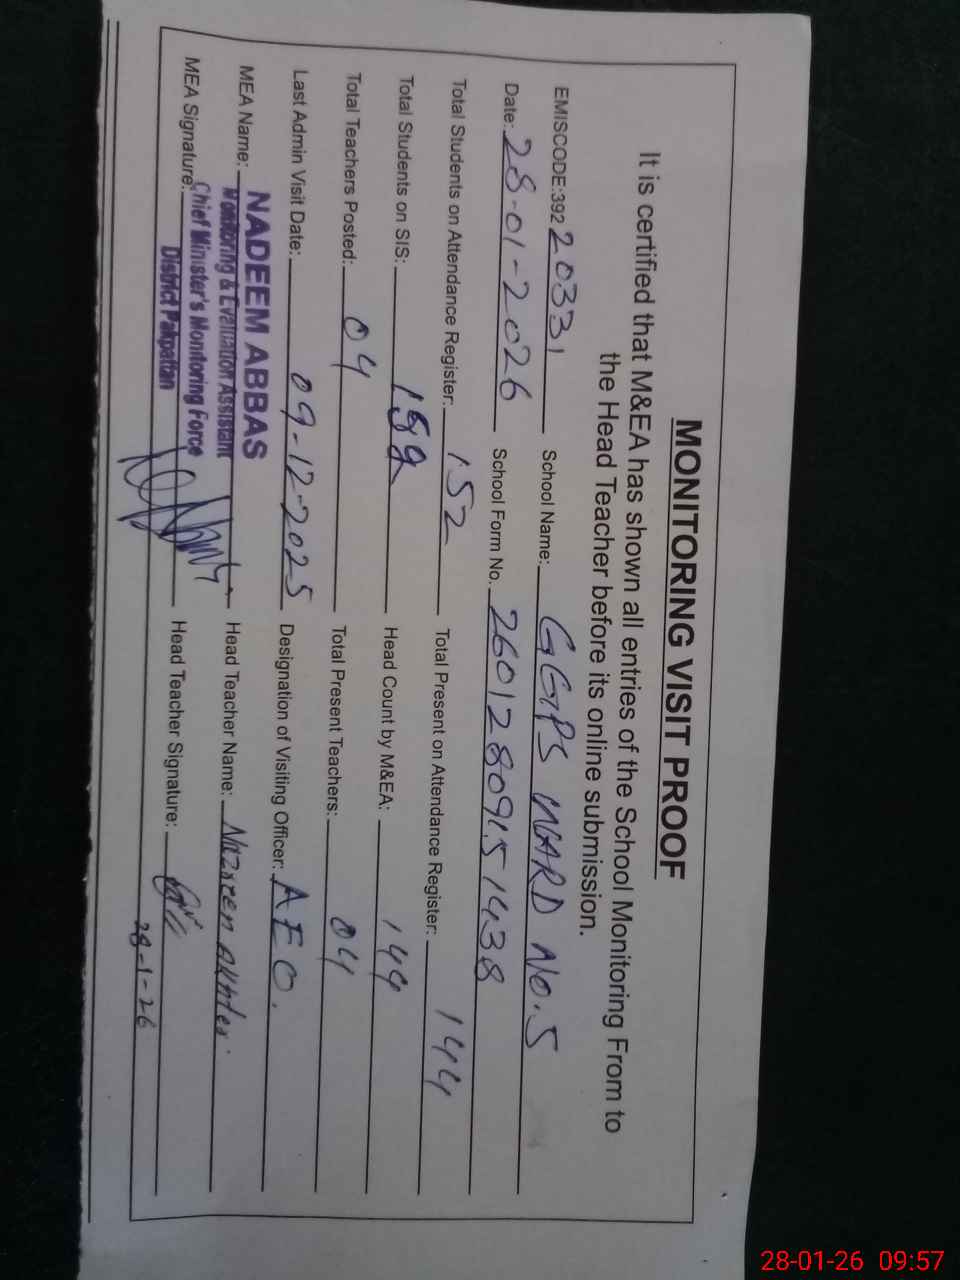 MONITORING VISIT PROOF
It is certified that M&EA has shown all entries of the School Monitoring From to
the Head Teacher before its online submission.
EMISCODE:392 20331 School Name: GGPS WARD No.5
Date: 28-01-2026 School Form No. 26012809151438
Total Students on Attendance Register: 152 Total Present on Attendance Register: 144
Total Students on SIS: Head Count by M&EA: 144
Total Teachers Posted: 04 Total Present Teachers: 04
Last Admin Visit Date: 09-12-2025 Designation of Visiting Officer: AEO.
MEA Name: NADEEM ABBAS Head Teacher Name: Nazreen akhter
Monitoring & Evaluation Assistant
MEA Signature: Chief Minister's Monitoring Force Head Teacher Signature:
District Pakpattan
28-1-26
28-01-26 09:57